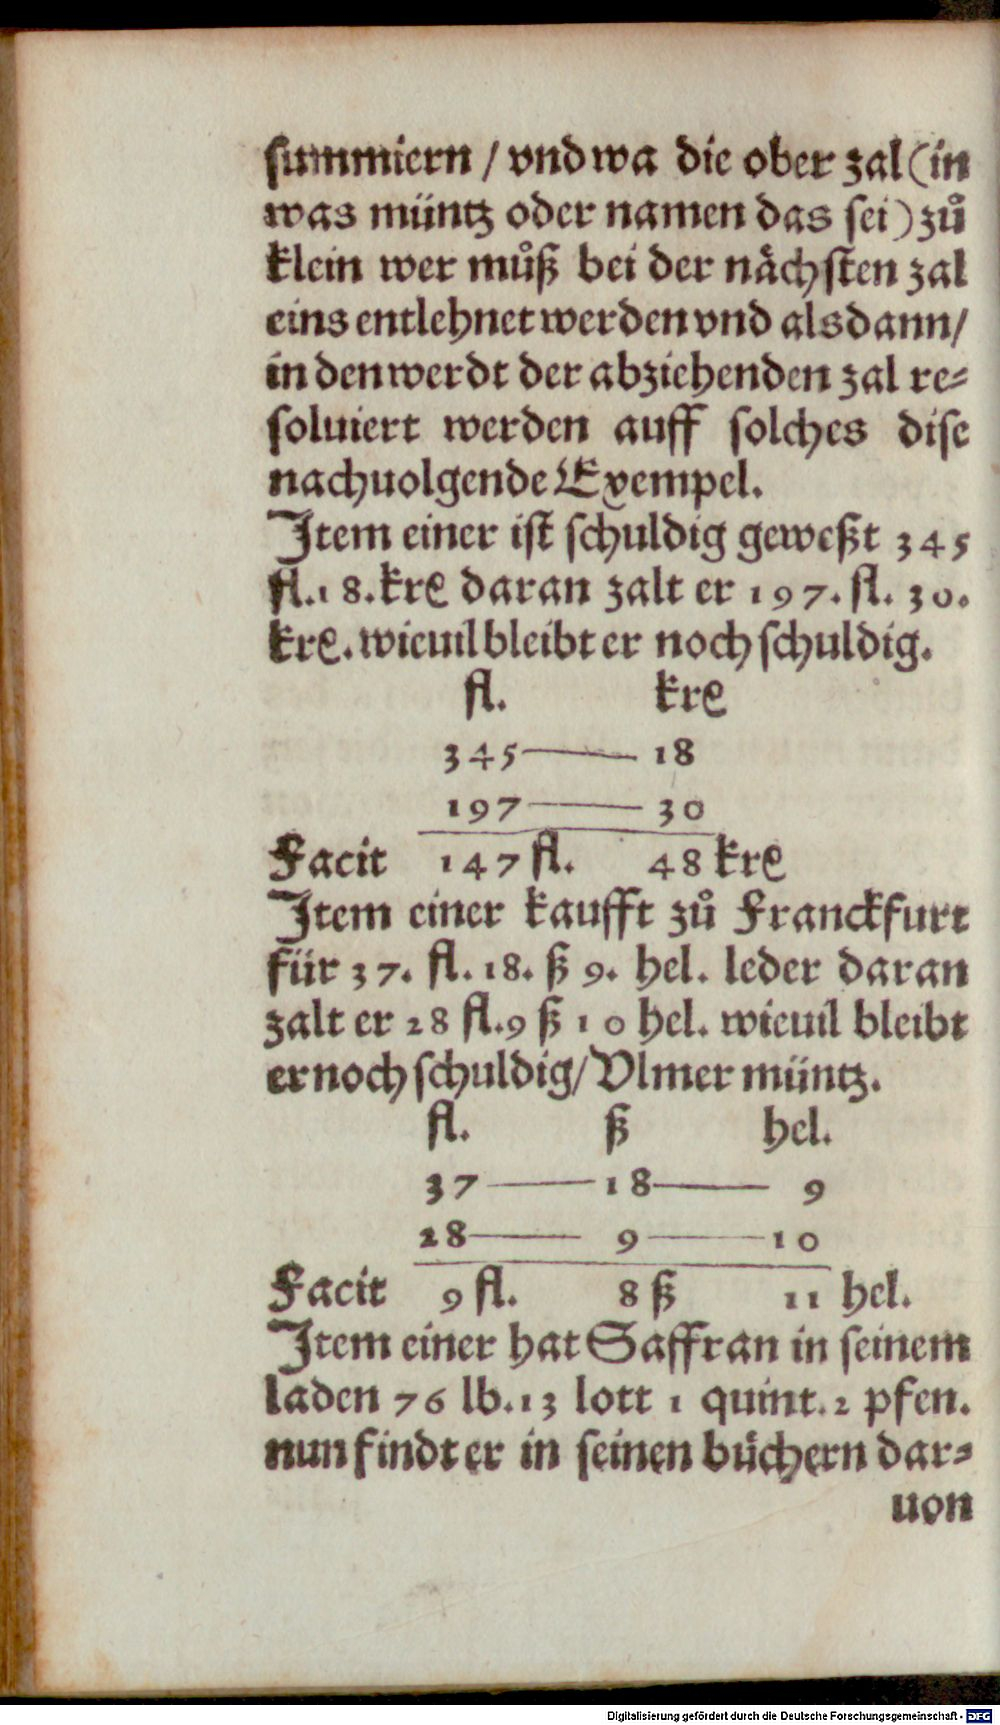 summiern / vnd wa die ober zal (in
was müntz oder namen das sei) zů
klein wer můß bei der nächsten zal
eins entlehnet werden vnd alsdann/
in den werdt der abziehenden zal re-
soluiert werden auff solches dise
nachuolgende Exempel.
Item einer ist schuldig geweßt 345
fl. 18. kre daran zalt er 197. fl. 30.
kre. wieuil bleibt er noch schuldig.
fl. kre
345 — 18
197 — 30
Facit 147 fl. 48 kre
Item einer kaufft zů Franckfurt
für 37. fl. 18. ß 9. hel. leder daran
zalt er 28 fl. 9 ß 10 hel. wieuil bleibt
er noch schuldig/ Vlmer müntz.
fl. ß hel.
37 — 18 — 9
28 — 9 — 10
Facit 9 fl. 8 ß 11 hel.
Item einer hat Saffran in seinem
laden 76 lb. 13 lott 1 quint. 2 pfen.
nun findt er in seinen büchern dar-
uon
Digitalisierung gefördert durch die Deutsche Forschungsgemeinschaft - DFG